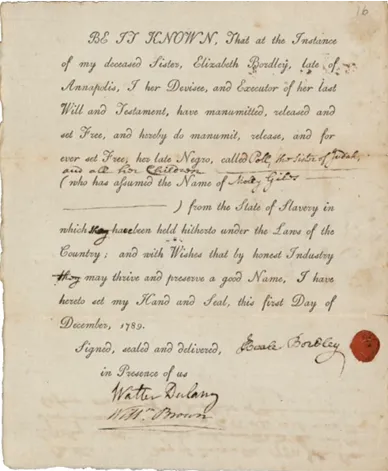 16
BE IT KNOWN, That at the Instance
of my deceased Sister, Elizabeth Bordley, late of
Annapolis, I her Devisee, and Executor of her last
Will and Testament, have manumitted, released and
set Free, and hereby do manumit, release, and for
ever set Free, her late Negro, called Poll, the Sister of Judah,
and all her Children
(who has assumed the Name of Molly Giles
) from the State of Slavery in
which they have been held hitherto under the Laws of the
Country; and with Wishes that by honest Industry
they may thrive and preserve a good Name, I have
hereto set my Hand and Seal, this first Day of
December, 1789.
Signed, sealed and delivered,
in Presence of us
Beale Bordley
Walter Dulany
Will<sup>m</sup> Brown